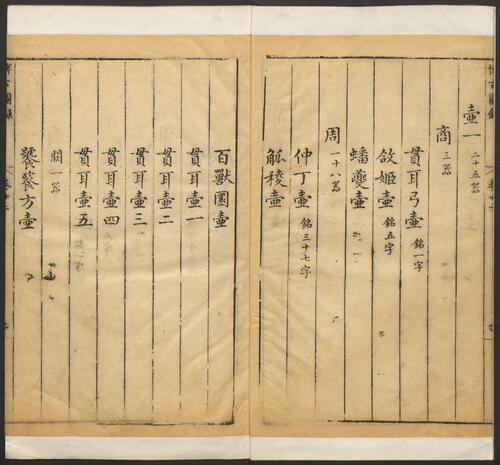 壺一 二十五器
商 三器
貫耳弓壺 銘一字
欱姬壺 銘五字
蟠夔壺
周 一十八器
仲丁壺 銘三十七字
觚稜壺
百獸圜壺
貫耳壺一
貫耳壺二
貫耳壺三
貫耳壺四
貫耳壺五
闕一器
饕餮方壺